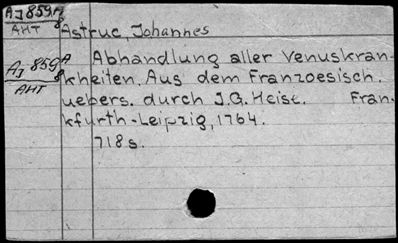 AJ 859A8
AHT
Astruc, Johannes
AJ 859A8
AHT
Abhandlung aller Venuskran-
kheiten. Aus dem Franzoesisch.
uebers. durch J.G. Heise. Fran-
kfurth-Leipzig, 1764.
718 s.